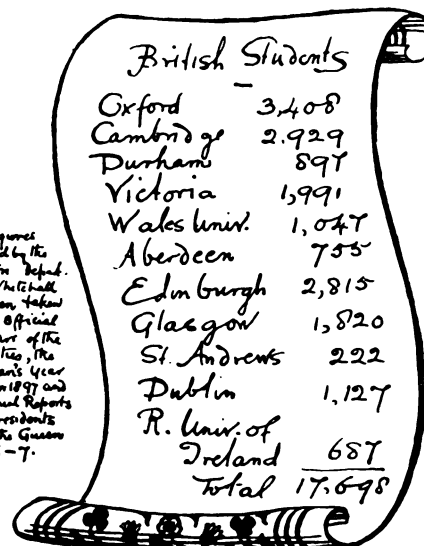 British Students
Oxford 3,408
Cambridge 2.929
Durham 897
Victoria 1,991
Wales Univ. 1,047
Aberdeen 755
Edinburgh 2,815
Glasgow 1,820
St. Andrews 222
Dublin 1,127
R. Univ. of
Ireland 687
Total 17.698
gures
d by the
n Depart.
hitehall
en taken
Official
of the
ties, the
an's Year
n 1897 and
ual Reports
residents
the Queen
-7.